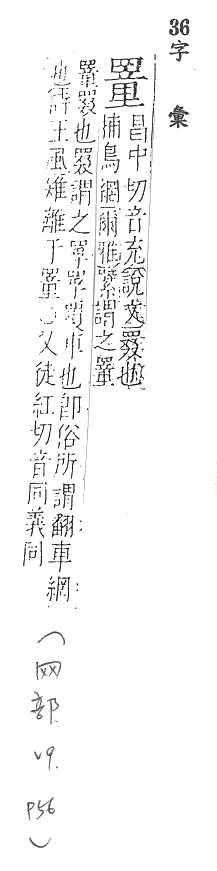 36字彙
罿
昌中切音充說文罬也
捕鳥網爾雅繴謂之罿
罿罬也罬謂之罦罦覆車也卽俗所謂翻車網
也詩王風雉離于罿又徒紅切音同義同
(网部 v9. P56)